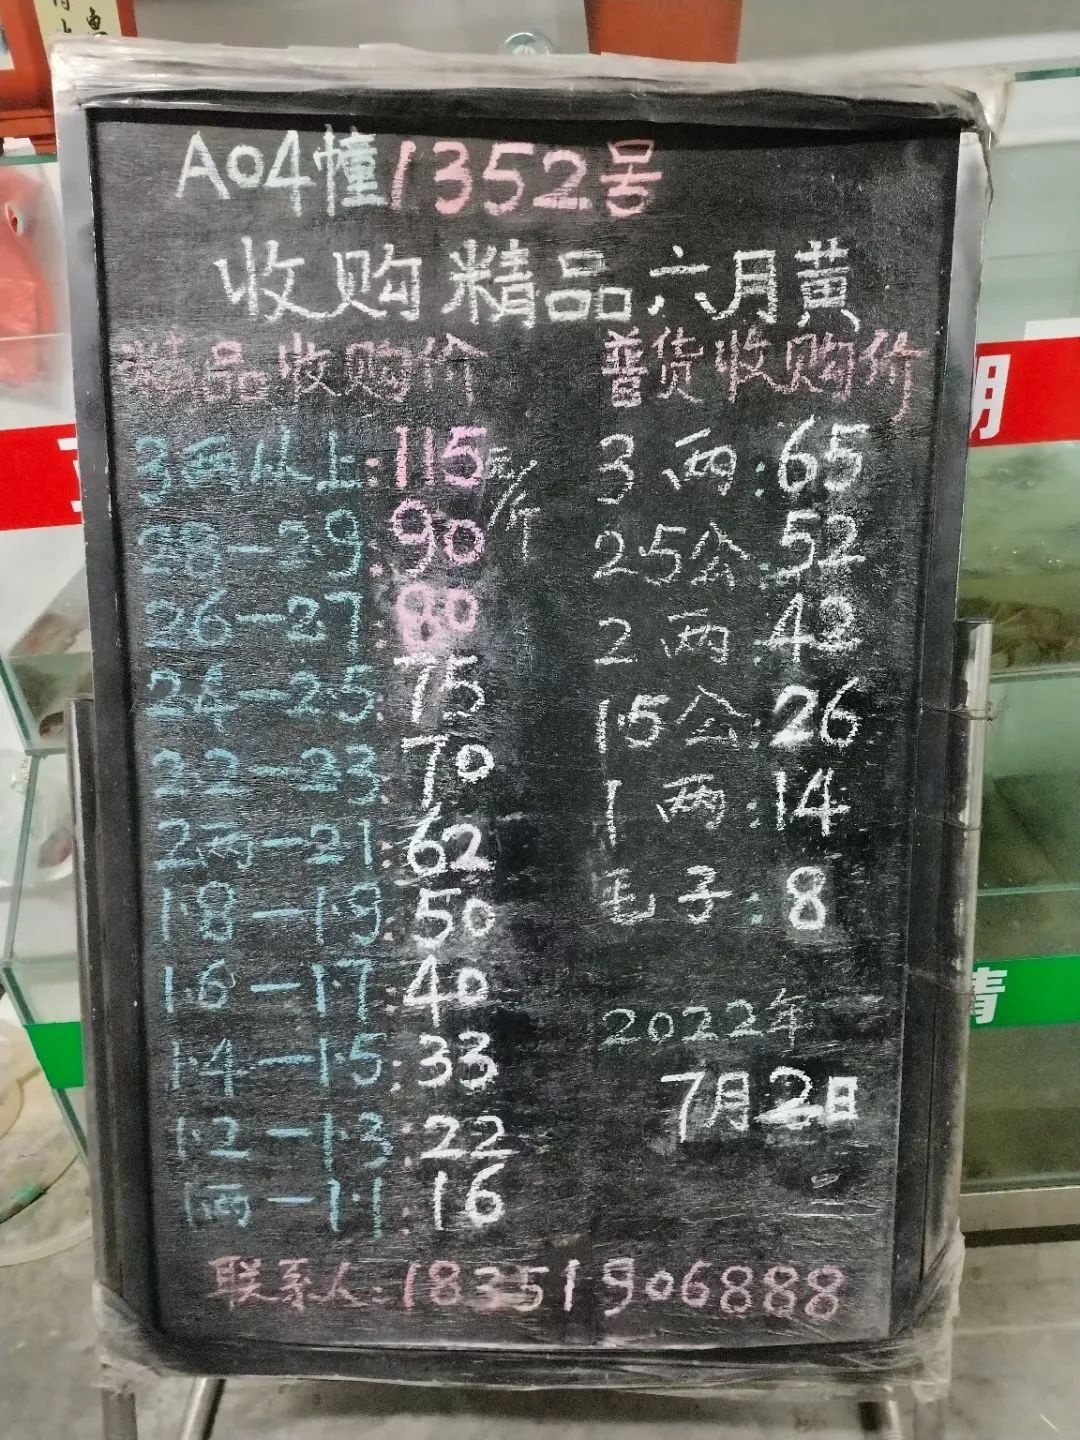 A04幢1352号
收购精品六月黄
精品收购价
3两以上:115元/斤
28-29:90
26-27:80
24-25:75
22-23:70
2两-21:62
1.8-1.9:50
1.6-1.7:40
1.4-1.5:33
1.2-1.3:22
1两-1.1:16
普货收购价
3两:65
2.5公:52
2两:42
1.5公:26
1两:14
毛子:8
2022年
7月2日
联系人:18351906888